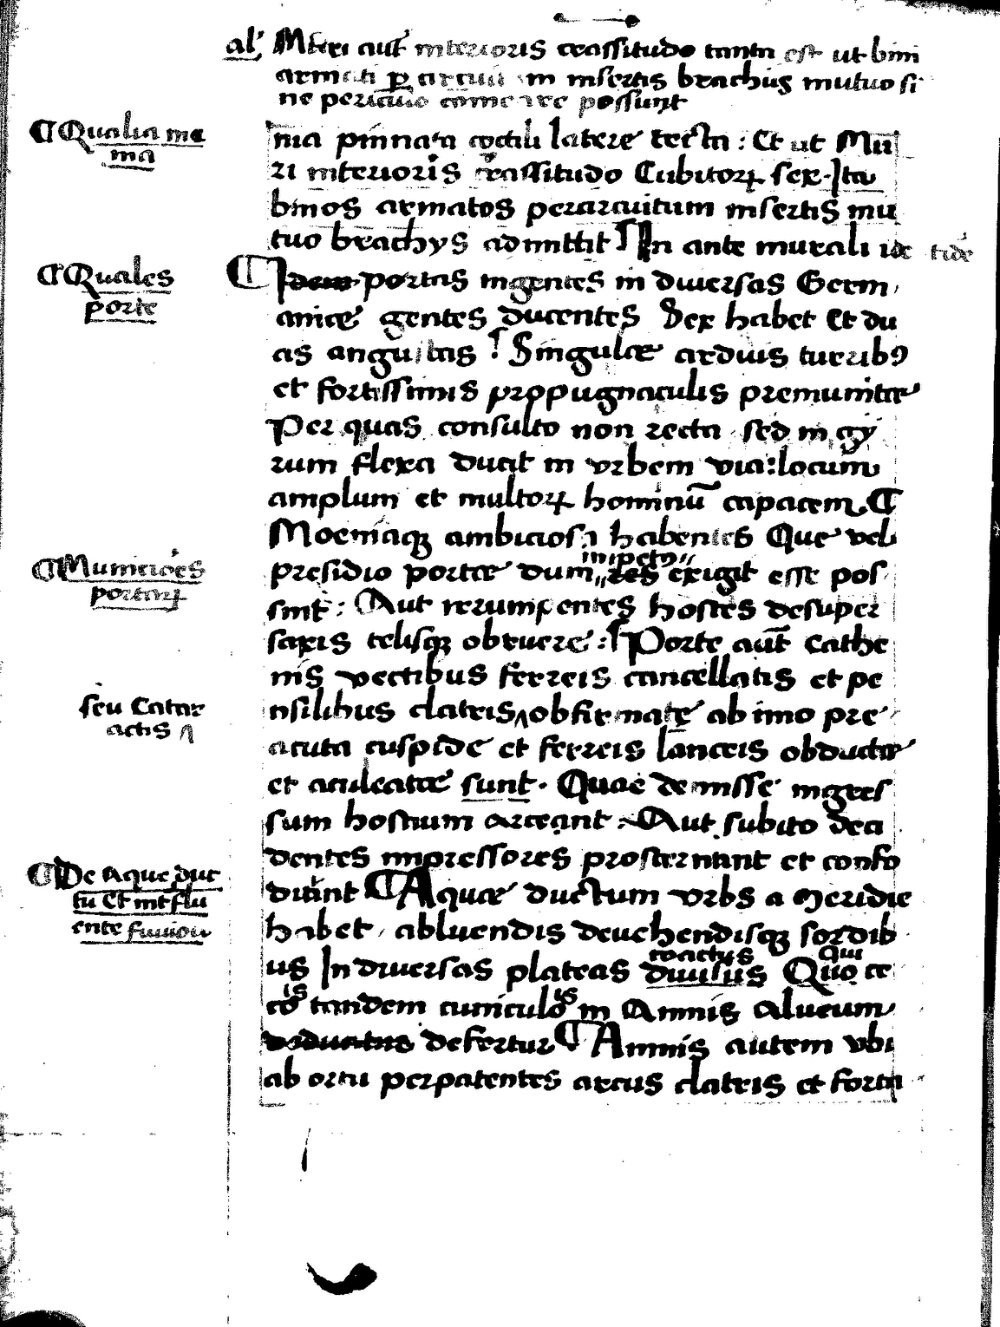 al' Muri aut̄ interioris crassitudo tanta est ut bini
armati per in insertis brachiis mutuo si
ne periculo comeare possunt
¶ Qualia me
nia
nia pinnata coctili latere tecta: Et ut Mu
ri interioris crassitudo Cubitoꝝ sex. Ita
binos armatos perarcuitum insertis mu
tuo brachys admittit ¶ In ante murali ide tide
¶ Quales
porte
Idem portas ingentes in diuersas Germ
anicę gentes ducentes Sex habet Et du
as angustas: Singulę arduis turribꝯ
et fortissimis propugnaculis premunitę
Per quas consulto non recta sed in gy
rum flexa ducit in vrbem via: locum
amplum et multoꝝ hominū capacem ¶
Moeniaqꝫ ambiciosa habentes Que vel
¶ Municiões
portaꝝ
impetꝯ
presidio portę dum res exigit esse pos
sint: Aut irrumpentes hostes desuper
saxis telisqꝫ obruere: ¶ Porte aut̄ Cathe
nis vectibus ferreis cancellatis et pe
seu Catar
actis ^
nsilibus clatris ^ obfirmatę ab imo pre
acuta cuspide et ferreis lanceis obductę
et aculeatę sunt. Quae demisse ingres
sum hostium arceant: Aut subito deci
dentes impressores prosternant et confo
¶ De Aque duc
tu Et intflu
ente fluuiou
diant ¶ Aquę ductum vrbs a Meridie
habet, abluendis deuehendisqꝫ sordib
coactus Qui
us In diuersas plateas diuisus Quo ce
is is
co tandem curriculo in Amnis Alueum
defertur ¶ Amnis autem vbi
ab ortu perpatentes arcus clatris et forti